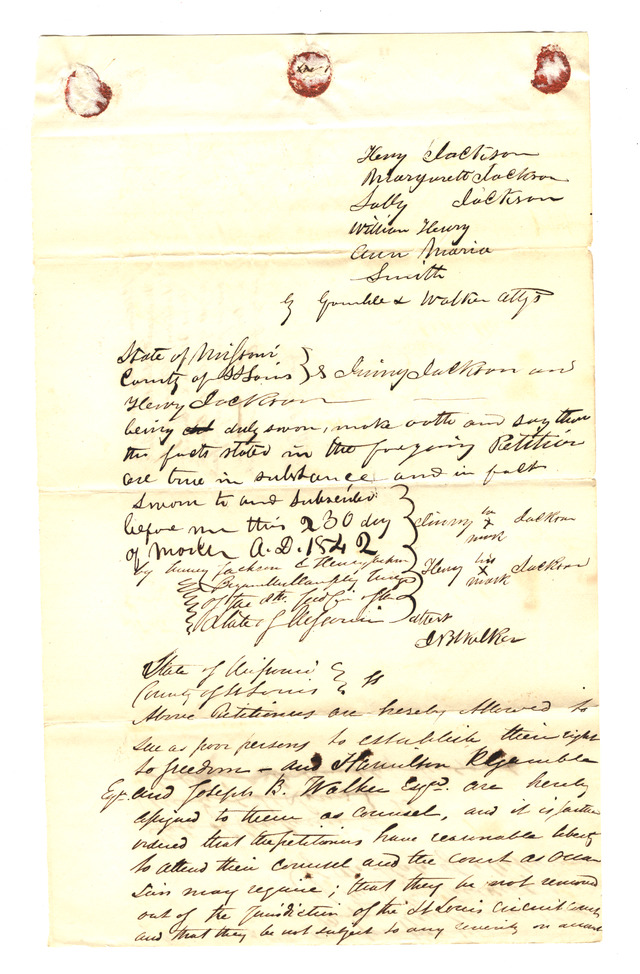 Henry Jackson
Margarett Jackson
Sally Jackson
William Henry
Ann Maria
Smith
by Gamble & Walker attys
State of Missouri
County of St Louis } S Jinny Jackson and
Henry Jackson
being duly sworn, make oath and say that
the facts stated in the foregoing Petition
are true in substance and in fact
sworn to and subscribed
before me this 230 day
of March A.D. 1842
by Jinny Jackson & Henry Jackson
Bryan Mullanphy Judge
of the 8th Jud Cir of the
State of Missouri
Jinny her x mark Jackson
Henry his x mark Jackson
attest
J B Walker
State of Missouri
County of St Louis } ss
Above Petitioners are hereby allowed to
sue as poor persons to establish their right
to freedom – and Hamilton R Gamble
Esqr. and Joseph B. Walker Esqr. are hereby
assigned to them as counsel, and it is further
ordered that the petitioners have reasonable liberty
to attend their counsel and the court as occa
sion may require; that they be not removed
out of the jurisdiction of the St Louis circuit court
and that they be not subject to any severity on account